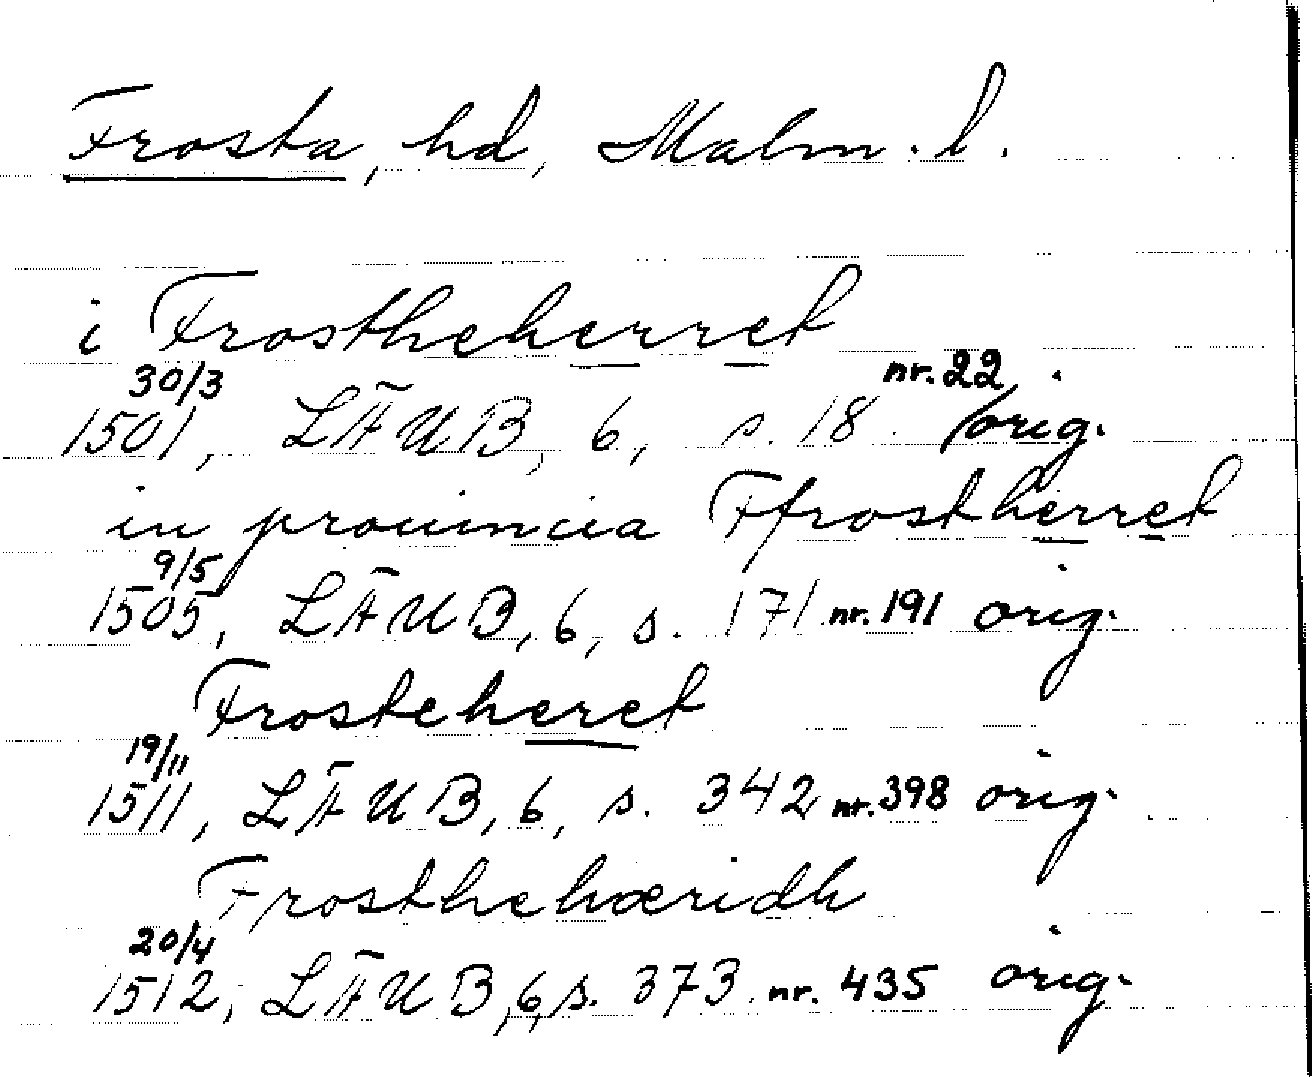 Frosta, hd, Malm. l.
i Frostheherret
30/3 nr. 22
1501, LÄUB, 6, s. 18 orig.
in prouincia Ffrostherret
9/5
1505, LÄUB, 6, s. 171 nr. 191 orig.
Frosteheret
19/11
1511, LÄUB, 6, s. 342 nr. 398 orig.
Frosthehæridh
20/4
1512, LÄUB, 6, s. 373 nr. 435 orig.